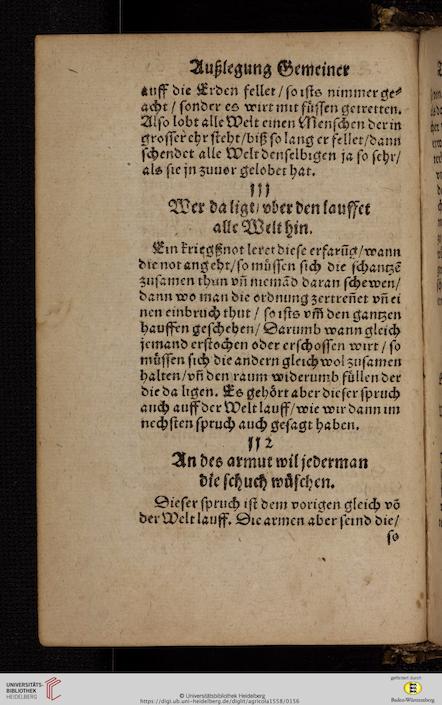 Außlegung Gemeiner
auff die Erden fellet / so ists nimmer ge⸗
acht / sonder es wirt mit füssen getretten.
Also lobt alle Welt einen Menschen der in
grosser ehr steht / biß so lang er fellet / dann
schendet alle Welt denselbigen ja so sehr /
als sie jn zuuor gelobet hat.
111
Wer da ligt / vber den lauffet
alle Welt hin.
Ein kriegßnot leret diese erfarūg / wann
die not angeht / so müssen sich die schantzē
zusamen thun vñ niemād daran schewen /
dann wo man die ordnung zertreñet vñ ei
nen einbruch thut / so ists vm̃ den gantzen
hauffen geschehen / Darumb wann gleich
jemand erstochen oder erschossen wirt / so
müssen sich die andern gleich wol zusamen
halten / vñ den raum widerumb füllen der
die da ligen. Es gehört aber dieser spruch
auch auff der Welt lauff / wie wir dann im
nechsten spruch auch gesagt haben.
112
An des armut wil jederman
die schuch wüschen.
Dieser spruch ist dem vorigen gleich vō
der Welt lauff. Die armen aber seind die /
so
UNIVERSITÄTS-
BIBLIOTHEK
HEIDELBERG
© Universitätsbibliothek Heidelberg
https://digi.ub.uni-heidelberg.de/diglit/agricola1558/0156
gefördert durch
Baden-Württemberg